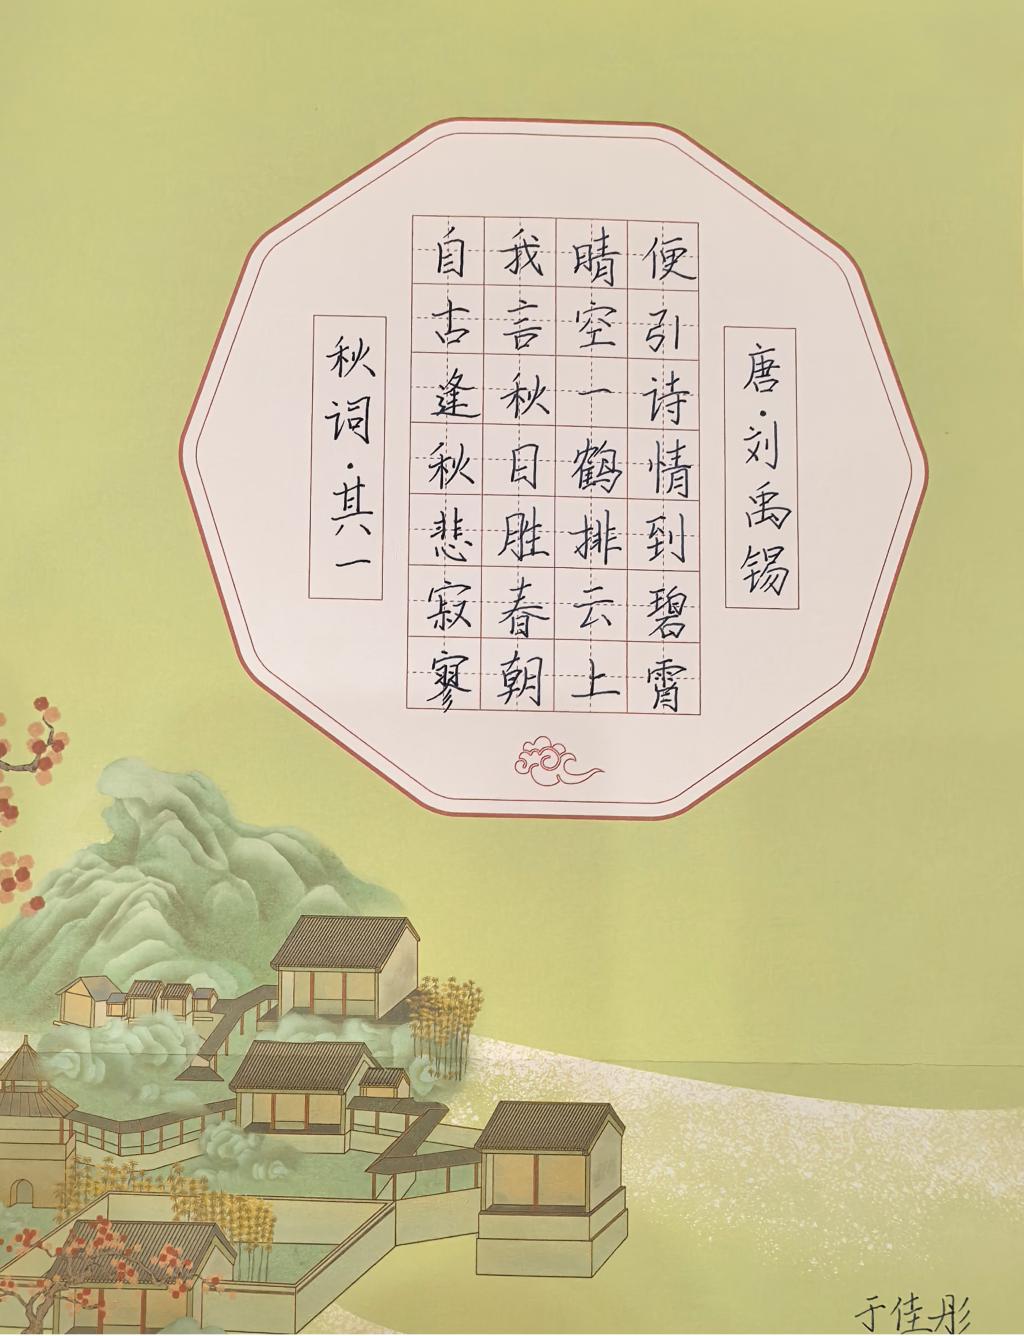 秋词·其一
自古逢秋悲寂寥
我言秋日胜春朝
晴空一鹤排云上
便引诗情到碧霄
唐·刘禹锡
于佳彤